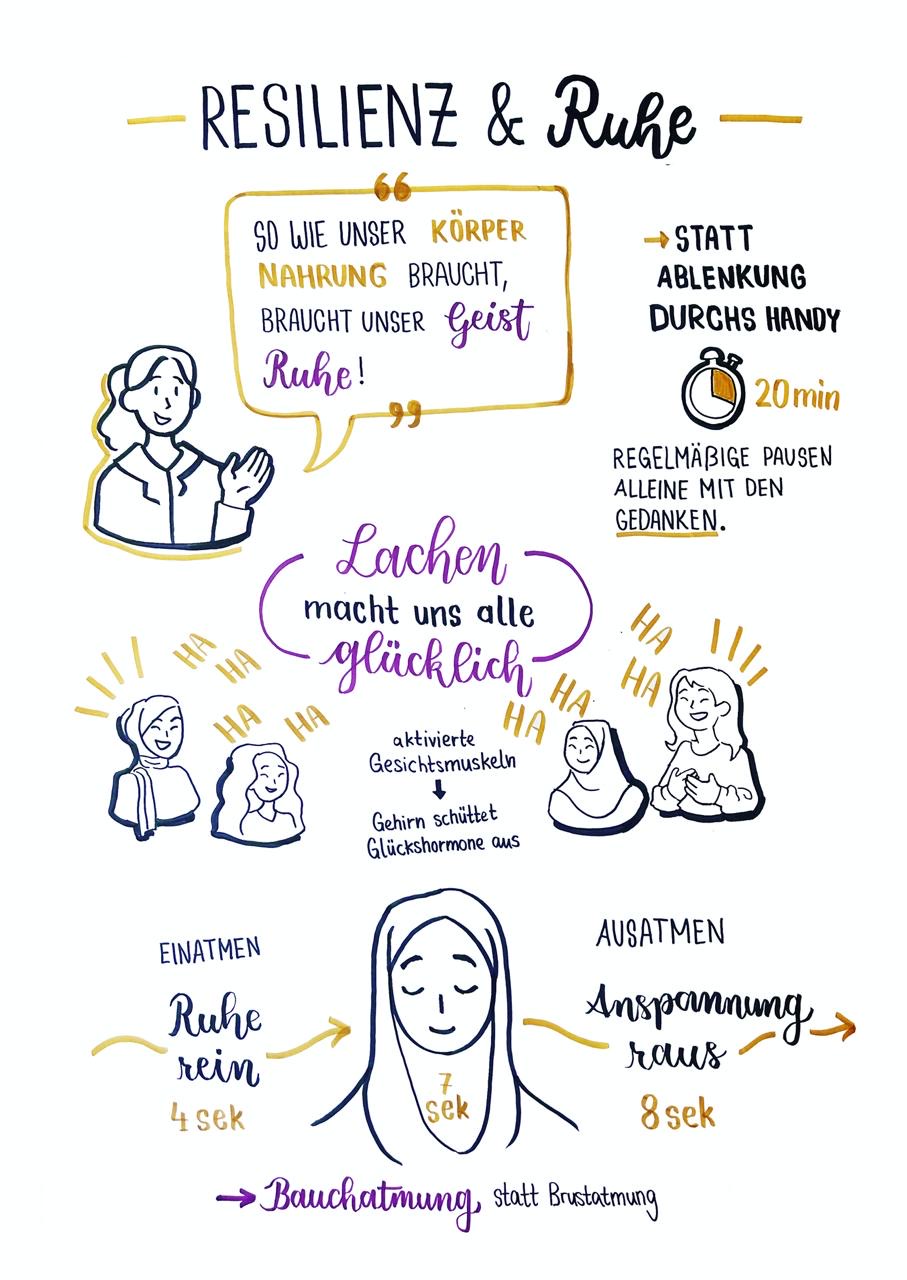 RESILIENZ & Ruhe
SO WIE UNSER KÖRPER
NAHRUNG BRAUCHT,
BRAUCHT UNSER Geist
Ruhe!
→ STATT
ABLENKUNG
DURCHS HANDY
20 min
REGELMÄßIGE PAUSEN
ALLEINE MIT DEN
GEDANKEN.
Lachen
macht uns alle
glücklich
HA
HA
HA
HA
HA
HA
HA
HA
aktivierte
Gesichtsmuskeln
Gehirn schüttet
Glückshormone aus
EINATMEN
Ruhe
rein
4 sek
7
sek
AUSATMEN
Anspannung
raus
8 sek
→ Bauchatmung, statt Brustatmung